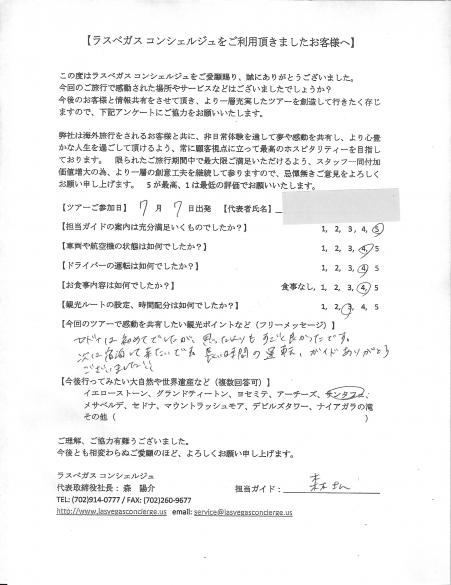 【ラスベガス コンシェルジュをご利用頂きましたお客様へ】
この度はラスベガス コンシェルジュをご愛顧賜り、誠にありがとうございました。
今回のご旅行で感動された場所やサービスなどはございましたでしょうか？
今後のお客様と情報共有をさせて頂き、より一層充実したツアーを創造して行きたく存じ
ますので、下記アンケートにご協力をお願いいたします。
弊社は海外旅行をされるお客様と共に、非日常体験を通して夢や感動を共有し、より心豊
かな人生を過ごして頂けるよう、常に顧客視点に立って最高のホスピタリティーを目指し
ております。 限られたご旅行期間中で最大限ご満足いただけるよう、スタッフ一同付加
価値増大の為、より一層の創意工夫を継続して参りますので、忌憚無きご意見をよろしく
お願い申し上げます。 5が最高、1は最低の評価でお願いいたします。
【ツアーご参加日】 7 月 7 日出発 【代表者氏名】
【担当ガイドの案内は充分満足いくものでしたか？】 1, 2, 3, 4, 5
【車両や航空機の状態は如何でしたか？】 1, 2, 3, 4, 5
【ドライバーの運転は如何でしたか？】 1, 2, 3, 4, 5
【お食事内容は如何でしたか？】 食事なし, 1, 2, 3, 4, 5
【観光ルートの設定、時間配分は如何でしたか？】 1, 2, 3, 4, 5
【今回のツアーで感動を共有したい観光ポイントなど（フリーメッセージ）】
は初めてでしたが、思ったよりもすごく良かったです。
次は宿泊して来たいですね 長い時間の運転、ガイドありがとう
ございました!!
【今後行ってみたい大自然や世界遺産など（複数回答可）】
イエローストーン、グランドティートン、ヨセミテ、アーチーズ、モンタナ、
メサベルデ、セドナ、マウントラッシュモア、デビルズタワー、ナイアガラの滝
その他（ ）
ご理解、ご協力有難うございました。
今後とも相変わらぬご愛顧のほど、よろしくお願い申し上げます。
ラスベガス コンシェルジュ
代表取締役社長： 森 陽介 担当ガイド： 森さん
TEL: (702)914-0777 / FAX: (702)260-9677
http://www.lasvegasconcierge.us email: service@lasvegasconcierge.us